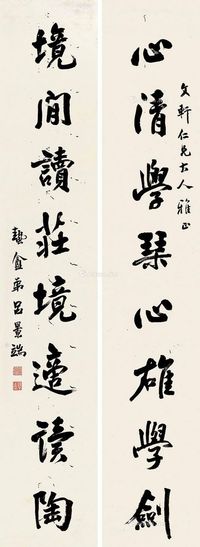 文軒仁兄大人雅正
心清學琴心雄學劍
境閒讀莊境適读陶
蟄盦弟呂景端